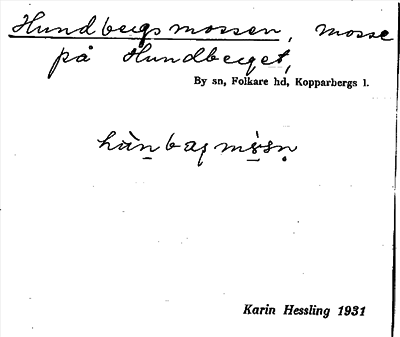 Hundbergsmossen, mosse
på Hundberget,
By sn, Folkare hd, Kopparbergs l.
Karin Hessling 1931